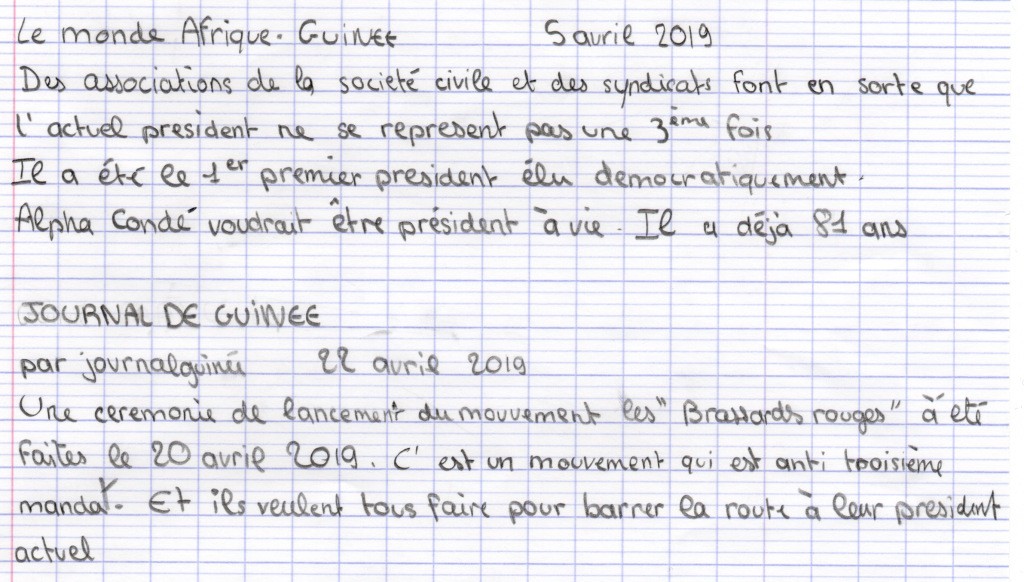 Le monde Afrique. GUINEE 5 avril 2019
Des associations de la societé civile et des syndicats font en sorte que
l'actuel president ne se represent pas une 3ème fois
Il a été le 1er premier president élu democratiquement.
Alpha Condé voudrait être président à vie. Il a déjà 81 ans
JOURNAL DE GUINEE
par journalguinée 22 avril 2019
Une ceremonie de lancement du mouvement les "Brassards rouges" à eté
faites le 20 avril 2019. C'est un mouvement qui est anti troisième
mandat. Et ils veulent tous faire pour barrer la route à leur president
actuel